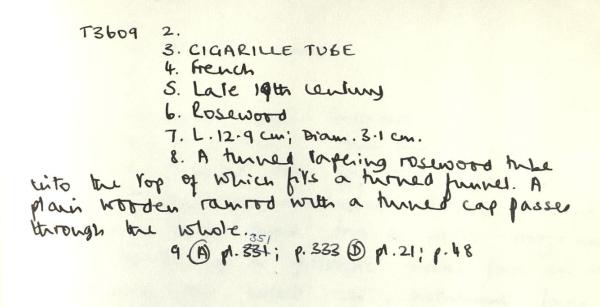 T3609 2.
3. CIGARILLE TUBE
4. French
5. Late 19th century
6. Rosewood
7. L. 12.9 cm; Diam. 3.1 cm.
8. A turned tapering rosewood tube
into the top of which fits a turned funnel. A
plain wooden ramrod with a turned cap passes
through the whole.
351
9. (A) pl. 331; p. 333 (D) pl. 21; p. 48